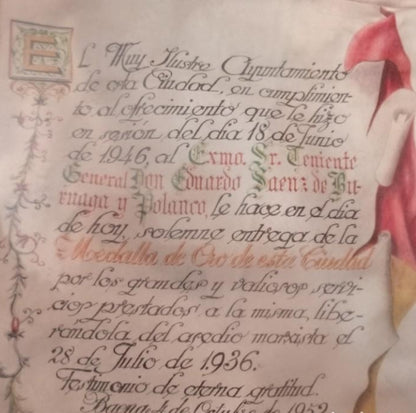 EL Muy Ilustre Ayuntamiento
de esta Ciudad, en cumplimien-
to al ofrecimiento que le hizo
en sesión del día 18 de Junio
de 1946, al Exmo. Sr. Teniente
General Don Eduardo Saenz de Bu-
ruaga y Polanco, le hace en el día
de hoy, solemne entrega de la
Medalla de Oro de esta Ciudad
por los grandes y valiosos servi-
cios prestados a la misma, libe-
randola del asedio marxista el
28 de Julio de 1.936.
Testimonio de eterna gratitud.
Baena 4 de Octubre de 1952